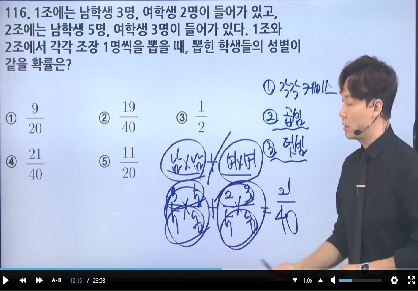 116. 1조에는 남학생 3명, 여학생 2명이 들어가 있고,
2조에는 남학생 5명, 여학생 3명이 들어가 있다. 1조와
2조에서 각각 조장 1명씩을 뽑을 때, 뽑힌 학생들의 성별이
같을 확률은?
① 9/20 ② 19/40 ③ 1/2
④ 21/40 ⑤ 11/20
① 각각 케이스
② 곱셈
③ 덧셈
남×남 + 여×여
= 21/40
A-B 12:15 / 23:28 1.0x